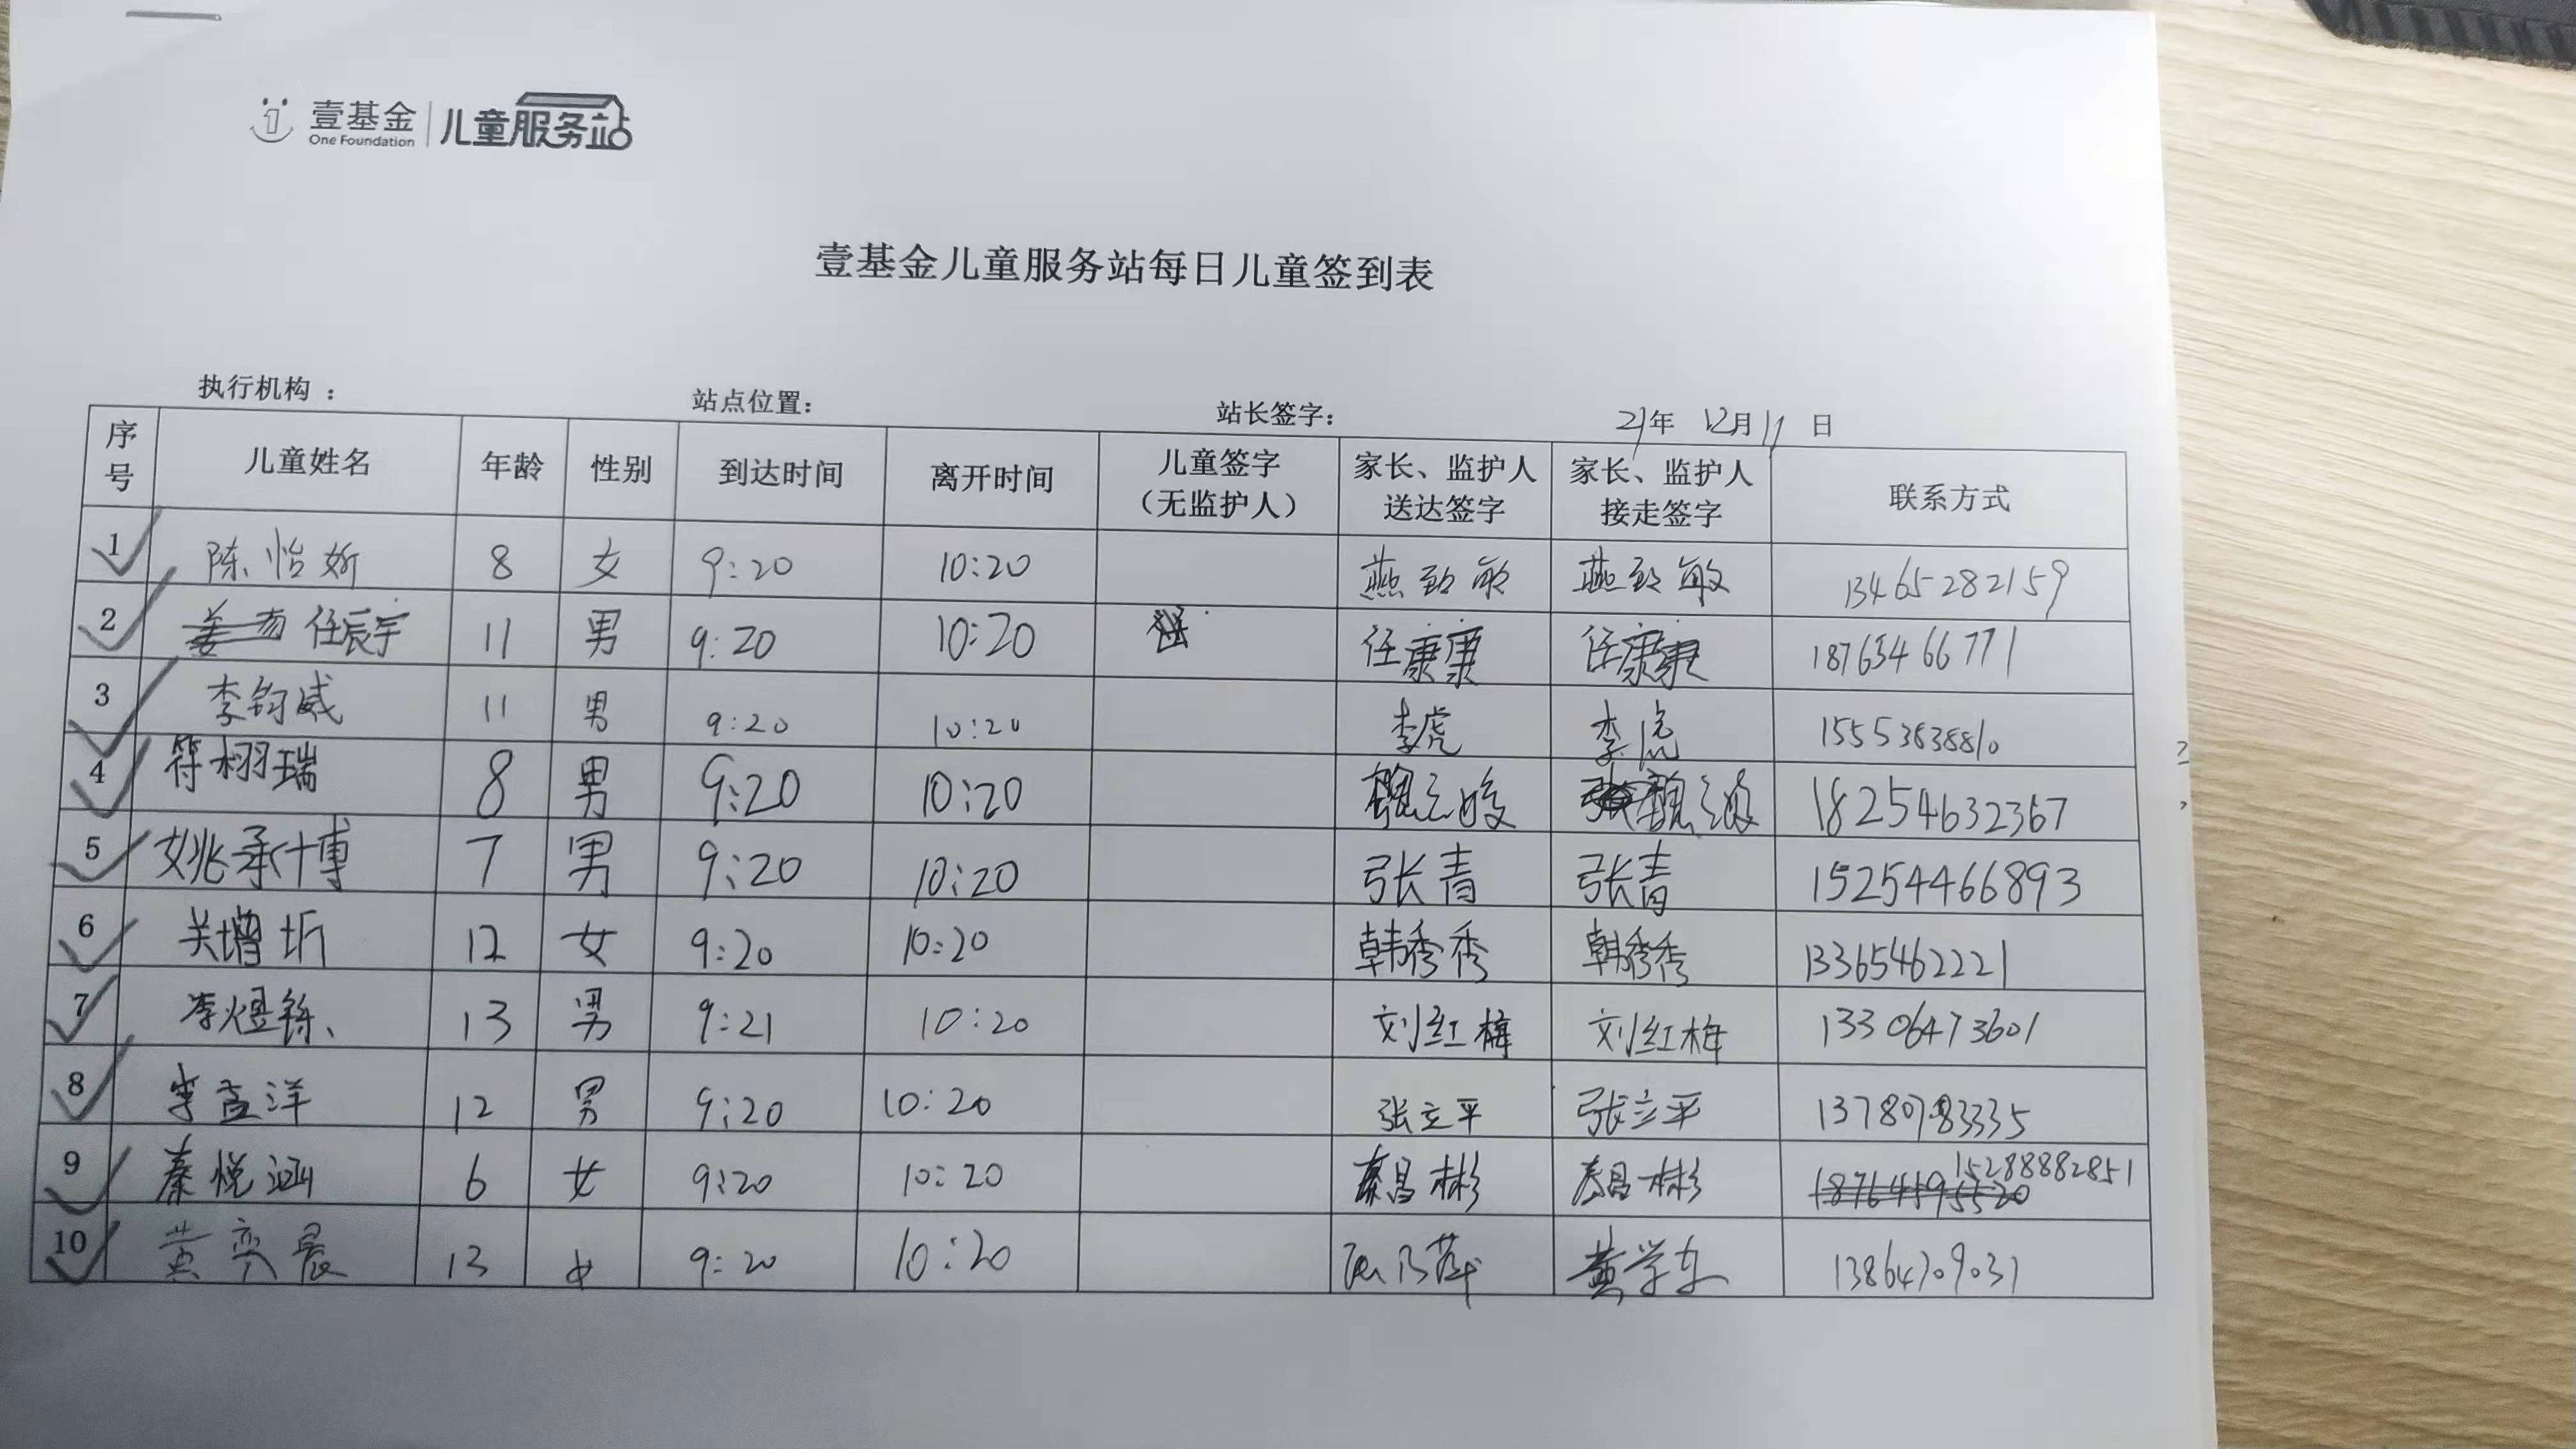 壹基金 儿童服务站
One Foundation
壹基金儿童服务站每日儿童签到表
执行机构 : 站点位置: 站长签字: 21年 12月11日
序号 儿童姓名 年龄 性别 到达时间 离开时间 儿童签字（无监护人） 家长、监护人送达签字 家长、监护人接走签字 联系方式
1 陈怡妡 8 女 9:20 10:20 燕致敏 燕致敏 13465282159
2 任辰宇 11 男 9:20 10:20 任康康 任康康 18763466771
3 李钧威 11 男 9:20 10:20 李虎 李虎 15553838810
4 符栩瑞 8 男 9:20 10:20 18254632367
5 姚承博 7 男 9:20 10:20 张青 张青 15254466893
6 关增圻 12 女 9:20 10:20 韩秀秀 韩秀秀 13365462221
7 李煜铄 13 男 9:21 10:20 刘红梅 刘红梅 13306473601
8 李孟洋 12 男 9:20 10:20 张立平 张立平 13780783335
9 秦悦涵 6 女 9:20 10:20 秦昌彬 秦昌彬 15288882851
10 黄奕晨 13 女 9:20 10:20 黄学东 13864709031